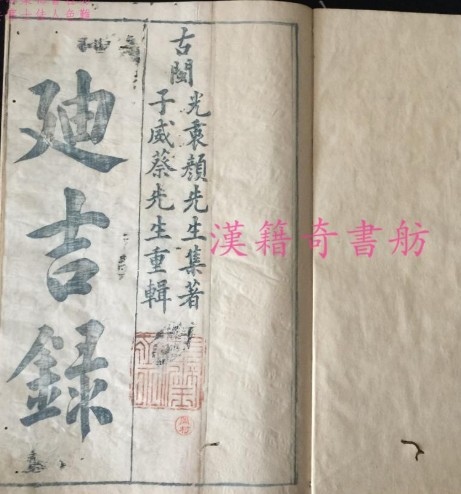 古閩
光衷顏先生集著
子威蔡先生重輯
廸吉録
漢籍奇書舫